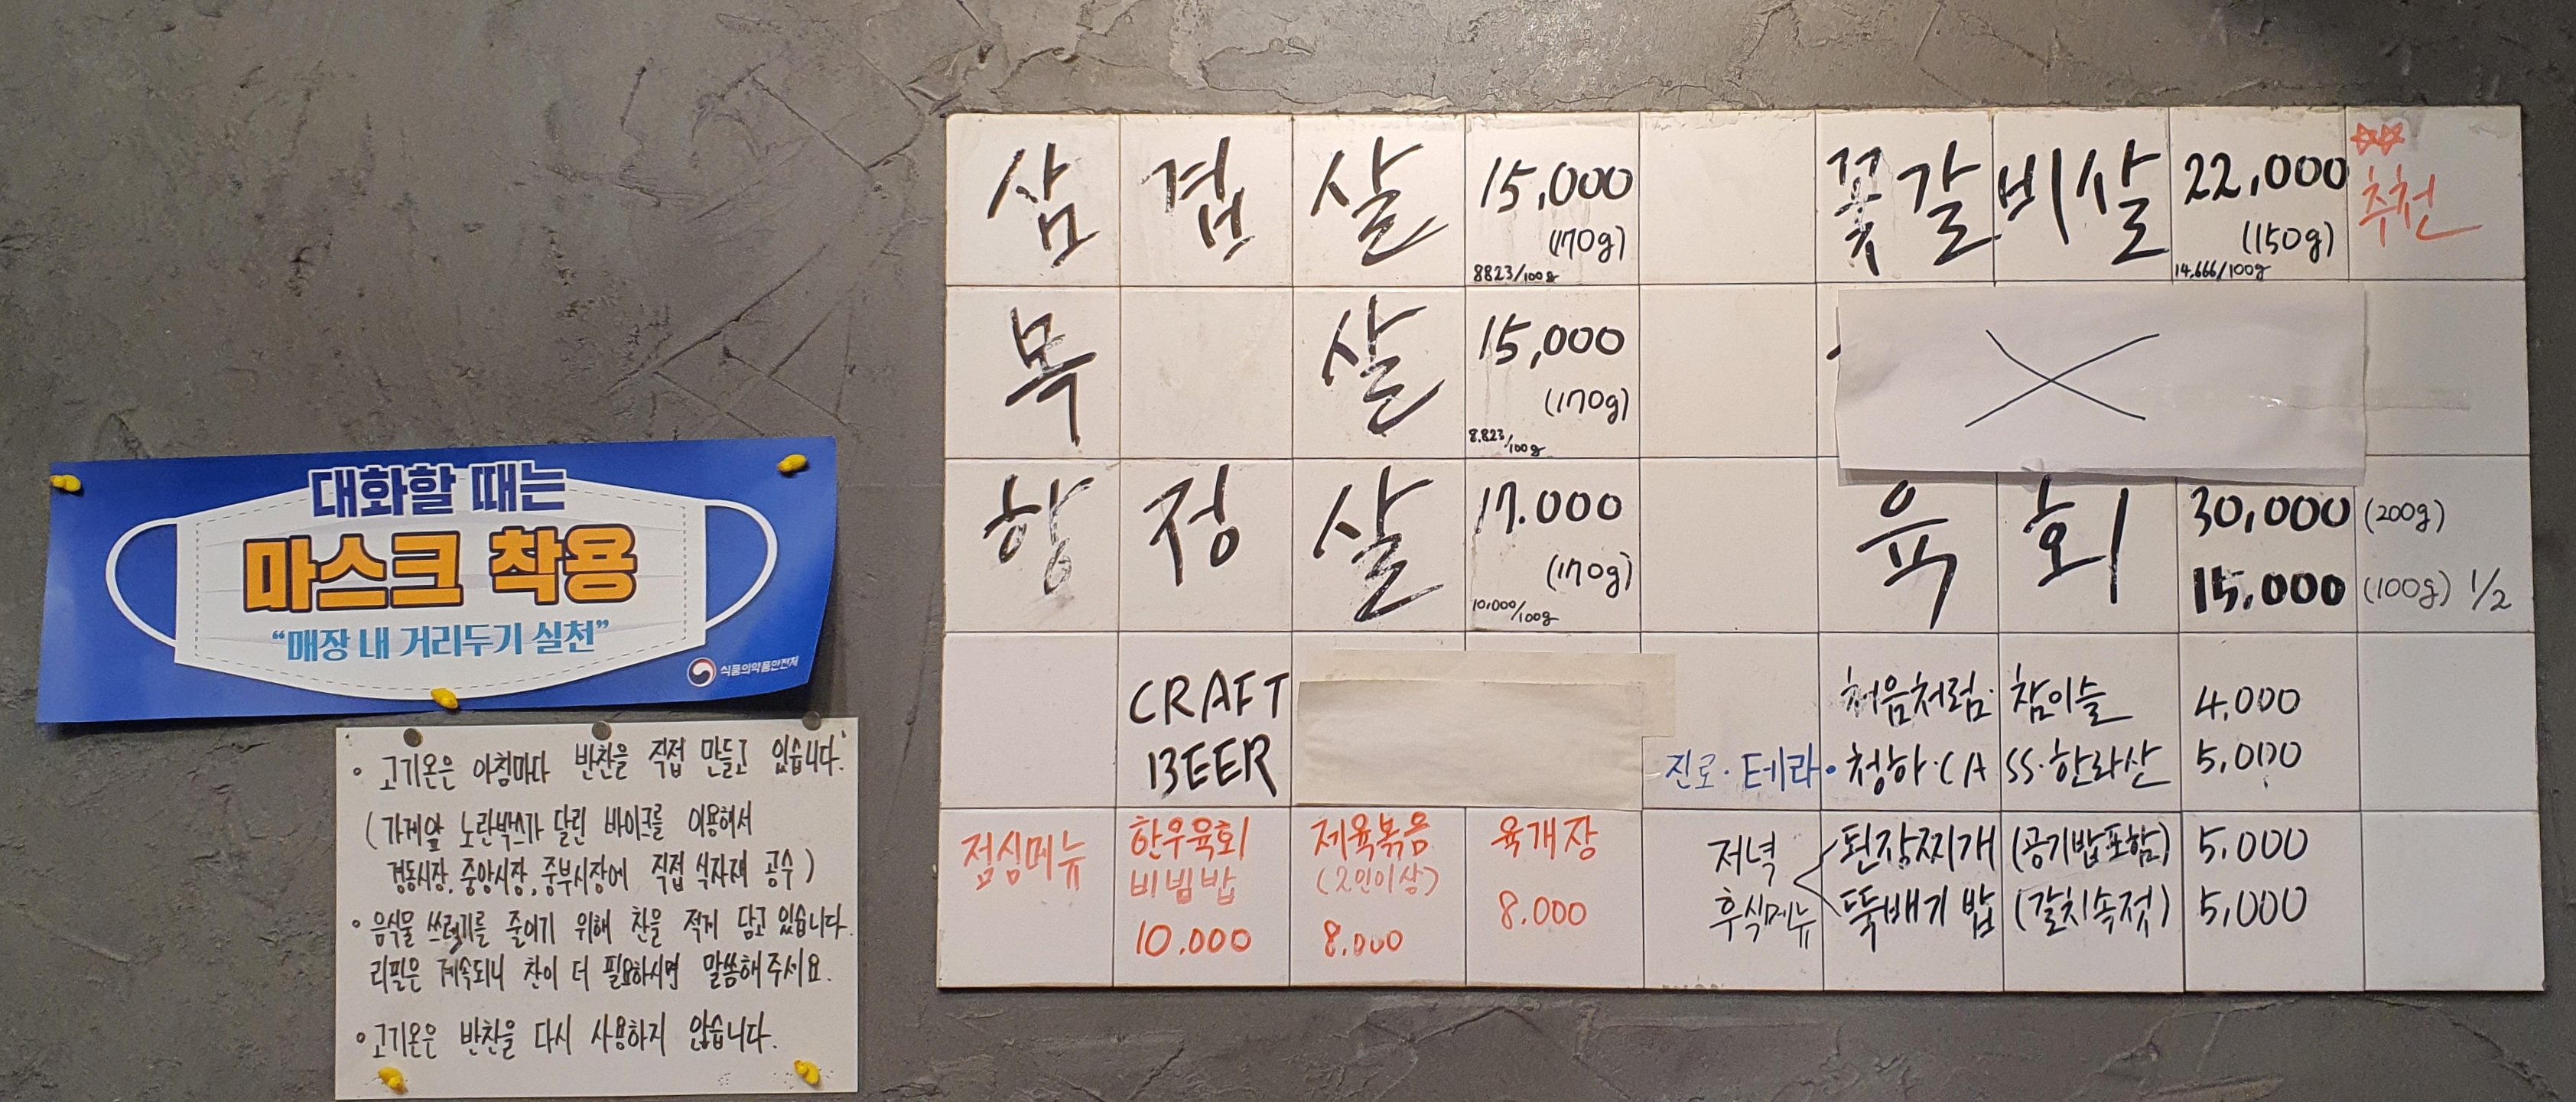 대화할 때는
마스크 착용
“매장 내 거리두기 실천”
식품의약품안전처
• 고기온은 아침마다 반찬을 직접 만들고 있습니다.
(가게앞 노란박스가 달린 바이크를 이용해서
경동시장, 중앙시장, 중부시장에 직접 식자재 공수)
• 음식물 쓰레기를 줄이기 위해 찬을 적게 담고 있습니다.
리필은 계속되니 찬이 더 필요하시면 말씀해주세요.
• 고기온은 반찬을 다시 사용하지 않습니다.
삼겹살 15,000
(170g)
8823/100g
목살 15,000
(170g)
8.823/100g
항정살 17.000
(170g)
10,000/100g
CRAFT
BEER
꽃갈비살 22,000
(150g)
14,666/100g
추천
X
육회 30,000 (200g)
15,000 (100g) 1/2
처음처럼·참이슬 4,000
진로·테라·청하·CASS·한라산 5,000
점심메뉴
한우육회
비빔밥
10.000
제육볶음
(2인이상)
8.000
육개장
8.000
저녁
후식메뉴
된장찌개 (공기밥포함) 5,000
뚝배기 밥 (갈치속젓) 5,000